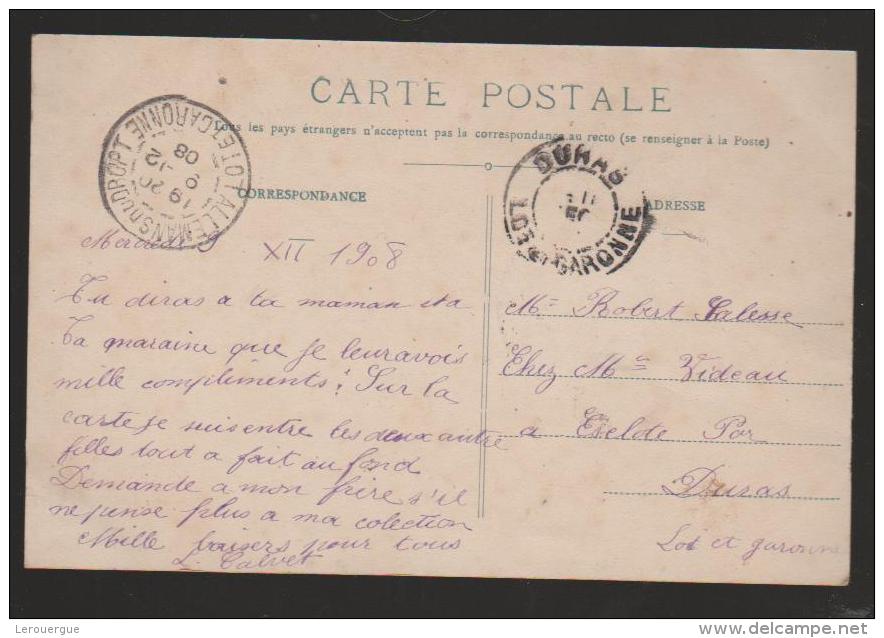 CARTE POSTALE
Tous les pays étrangers n'acceptent pas la correspondance au recto (se renseigner à la Poste)
ALLEMANS DU DROPT LOT-ET-GARONNE
19 20
9 -12
08
DURAS
LOT-ET-GARONNE
CORRESPONDANCE
ADRESSE
Mercredi 9 XII 1908
Tu diras a ta maman et a
Ta maraine que je leur avois
mille compliments! Sur la
carte je suis entre les deux autre
filles tout a fait au fond
Demande a mon frire s'il
ne pense plus a ma colection
Mille baisers pour tous
L. Calvet
Mr Robert Salesse
Chez Mr Videau
a Eselote Por
Duras
Lot et garonne
Lerouergue
www.delcampe.net